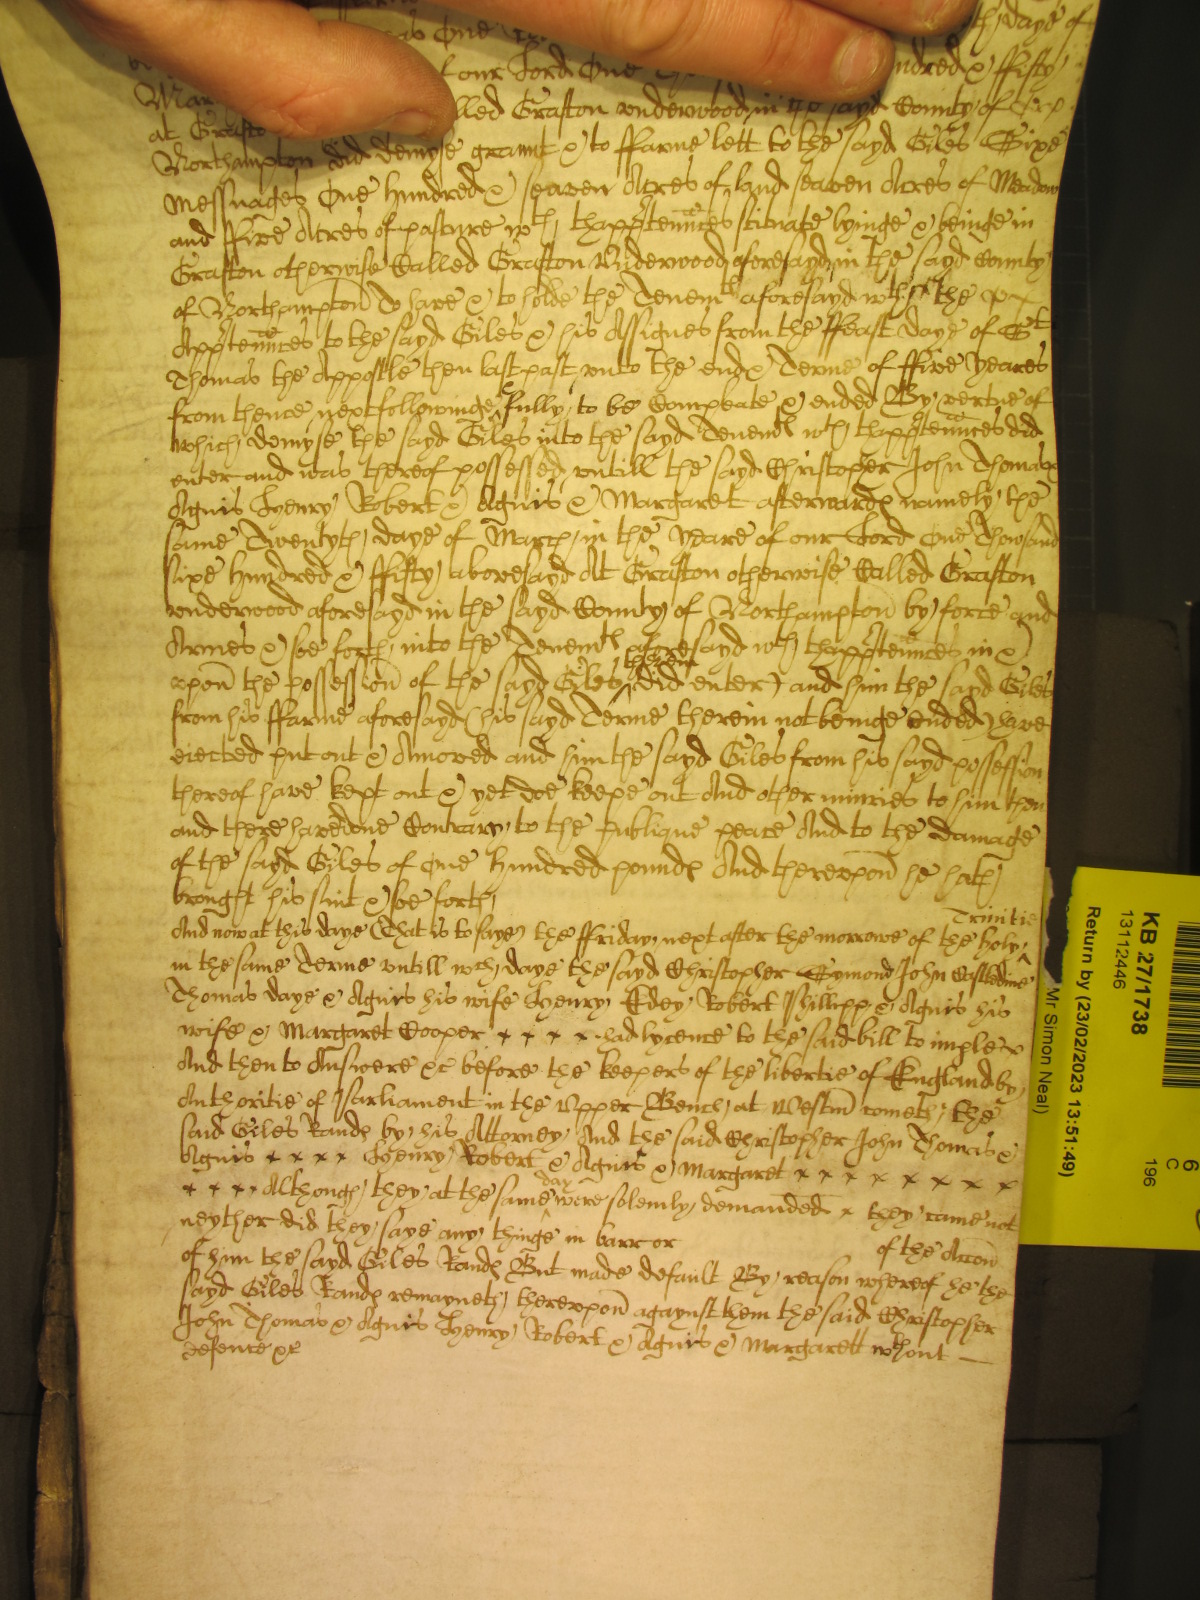 as One th daye of
our Lord One ndred & ffifty
Mar lled Grafton underwood in the sayd County of
at Grafto
Northampton did demyse graunt & to ffarme lett to the sayd Giles Sixe
Messuages One hundred & seaven Acres of land seaven Acres of Meadow
and ffive Acres of pasture wth thapptennces scituate lyinge & beinge in
Grafton otherwise Called Grafton Underwood aforesayd in the sayd County
of Northampton To have & to holde the Tenemts aforesayd wth the
Apptennces to the sayd Giles & his Assignes from the ffeast Daye of St
Thomas the Appostle then last past unto the end & Terme of ffive Yeares
from thence next followinge fully to be Compleate & ended By vertue of
which demyse the sayd Giles into the sayd Tenemts wth thapptennces did
enter and was thereof possessed untill the sayd Christopher John Thomas
Agnis Henry Robert & Agnis & Margaret afterwards namely the
same Twentyth daye of March in the Yeare of our Lord One Thowsand
sixe hundred & ffifty abovesayd At Grafton otherwise Called Grafton
underwood aforesayd in the sayd County of Northampton by force and
Armes & soe forth into the Tenemts aforesayd wth thapptennces in &
upon the possession of the sayd Giles therein did enter) and him the sayd Giles
from his ffarme aforesayd (his sayd Terme therein not beinge ended) have
eiected put out & Amoved and him the sayd Giles from his sayd possession
thereof have kept out & yet doe keepe out And other iniuries to him then
and there have done Contrary to the publique peace And to the damage
of the sayd Giles of One Hundred pounds And thereupon he hath
brought his suit & soe forth
And now at this daye (That is to saye) the ffriday next after the morrowe of the holy Trinitie
in the same Terme untill wch daye the sayd Christopher Symond John Castledine
Thomas daye & Agnis his wife Henry Edey Robert Phillipp & Agnis his
wife & Margaret Cooper x x x x had lycence to the said bill to imple
And then to Answere &c before the keepers of the libertie of England by
Authoritie of Parliament in the Upper Bench at Westm cometh the
said Giles Rands by his Attorney And the said Christopher John Thomas &
Agnis x x x x Henry Robert & Agnis & Margaret x x x x x x x x
x x x x Although they at the same day were solemly demanded x they came not
neyther did they saye any thinge in barr or of the Accon
of him the sayd Giles Rands But made default By reason whereof he the
sayd Giles Rands remayneth thereupon agaynst them the said Christopher
John Thomas & Agnis Henry Robert & Agnis & Margarett wthout
defence &c
KB 27/1738
13112446
Return by (23/02/2023 13:51:49)
Mr Simon Neal)
6
C
196